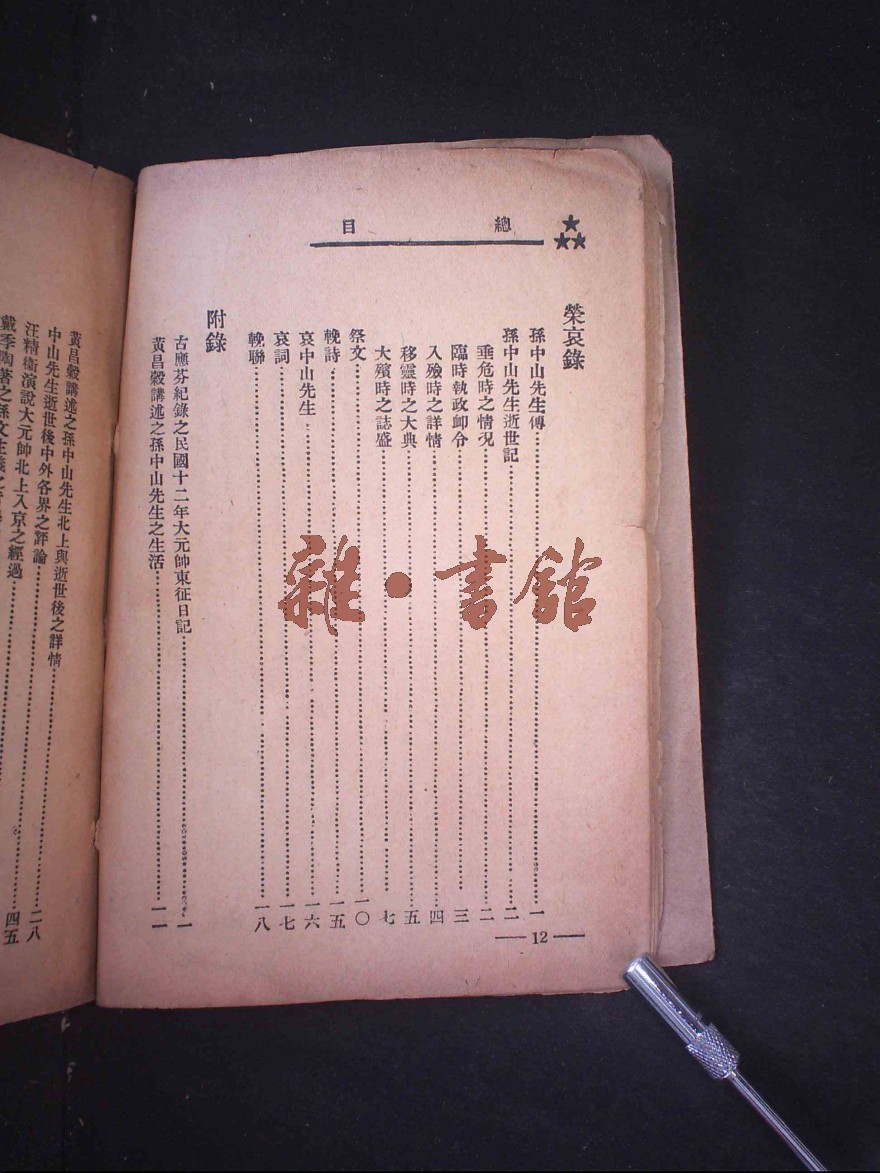 總目
榮哀錄
孫中山先生傳 一
孫中山先生逝世記 二
垂危時之情况 二
臨時執政卹令 三
入殮時之詳情 四
移靈時之大典 五
大殯時之誌盛 七
祭文 一〇
輓詩 一五
哀中山先生 一六
哀詞 一七
輓聯 一八
附錄
古應芬紀錄之民國十二年大元帥東征日記 一
黃昌穀講述之孫中山先生之生活 一一
— 12 —
黃昌穀講述之孫中山先生北上與逝世後之詳情
中山先生逝世後中外各界之評論 二八
汪精衛演說大元帥北上入京之經過 四五
戴季陶著之孫文主義之
雜·書館